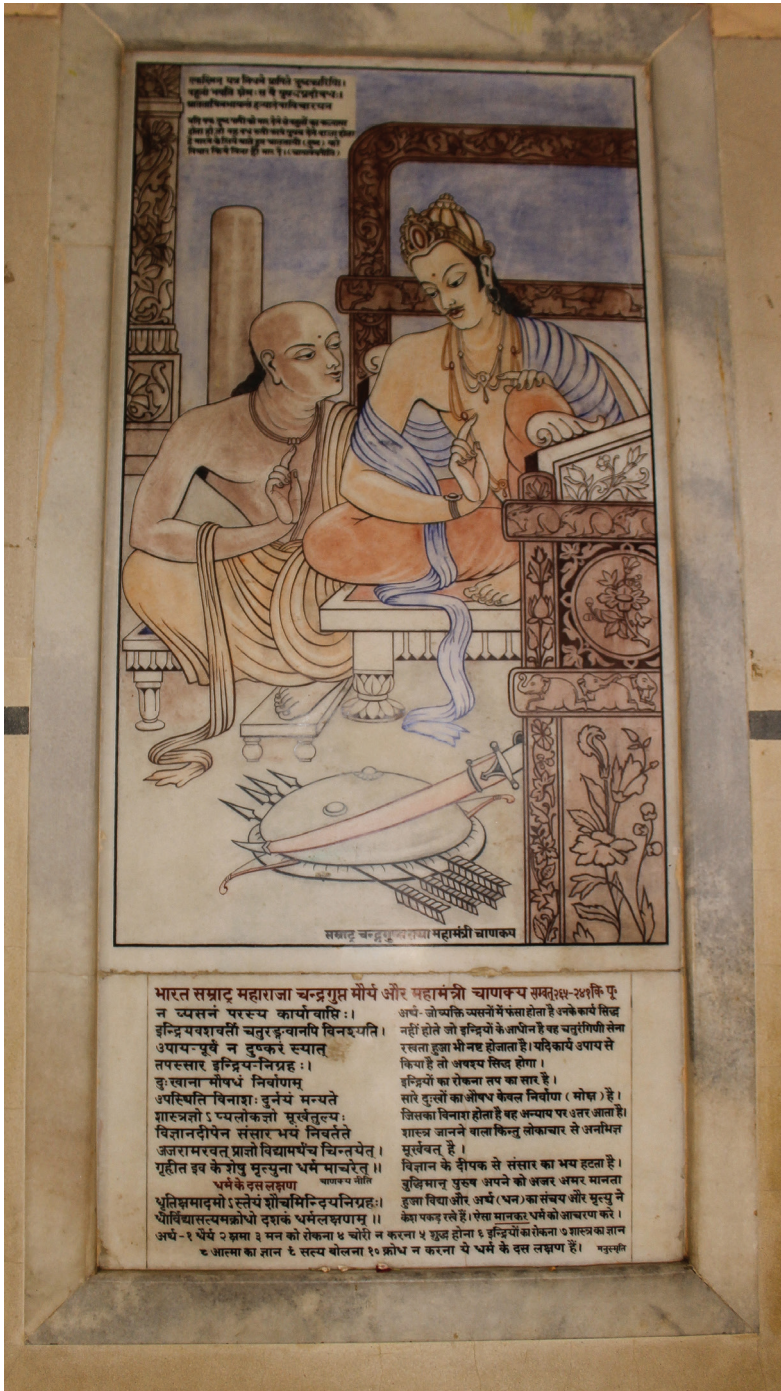 बहूनां भवति
यदि एक दुष्ट
सम्राट् चन्द्रगुप्त तथा महामंत्री चाणक्य
भारत सम्राट् महाराजा चन्द्रगुप्त मौर्य और महामंत्री चाणक्य सम्वत् २६५-२४१ वि पू॰
न व्यसनं परस्य कार्यावाप्तिः।
इन्द्रियवशवर्ती चतुरङ्गवानपि विनश्यति।
उपाय-पूर्वं न दुष्करं स्यात्
तपस्सार इन्द्रिय-निग्रहः।
दुःखाना मौषधं निर्वाणम्
उपस्थिति विनाशः दुर्नयं मन्यते
शास्त्रज्ञो ऽ प्यलोकज्ञो मूर्खतुल्यः
विज्ञानदीपेन संसार भयं निवर्तते
अजरामरवत् प्राज्ञो विद्यामर्थंच चिन्तयेत्।
गृहीत इव केशेषु मृत्युना धर्ममाचरेत्॥
चाणक्य नीति
अर्थ- जो व्यक्ति व्यसनों में फंसा होता है उनके कार्य सिद्ध
नहीं होते जो इन्द्रियों के आधीन है वह चतुरंगिणी सेना
रखता हुआ भी नष्ट होजाता है। यदि कार्य उपाय से
किया है तो अवश्य सिद्ध होगा।
इन्द्रियों का रोकना तप का सार है।
सारे दुःखों का औषध केवल निर्वाण (मोक्ष) है।
जिसका विनाश होता है वह अन्याय पर उतर आता है।
शास्त्र जानने वाला किन्तु लोकाचार से अनभिज्ञ
मूर्खवत् है।
विज्ञान के दीपक से संसार का भय हटता है।
बुद्धिमान् पुरुष अपने को अजर अमर मानता
हुआ विद्या और अर्थ (धन) का संचय और मृत्यु ने
केश पकड़ रखे हैं। ऐसा मानकर धर्म को आचरण करे।
धर्म के दस लक्षण
धृतिक्षमादमो ऽ स्तेयं शौचमिन्दियनिग्रहः।
धीर्विद्यासत्यमक्रोधो दशकं धर्मलक्षणाम्॥
अर्थ-१ धैर्य २ क्षमा ३ मन को रोकना ४ चोरी न करना ५ शुद्ध होना ६ इन्द्रियों का रोकना ७ शास्त्र का ज्ञान
८ आत्मा का ज्ञान ९ सत्य बोलना १० क्रोध न करना ये धर्म के दस लक्षण हैं। मनुस्मृति